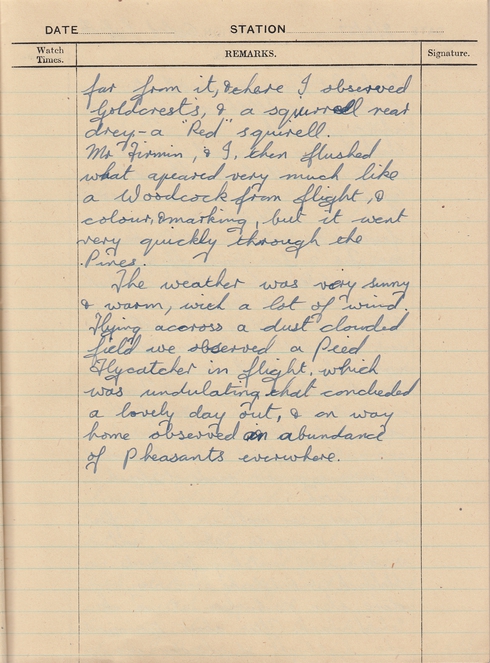 DATE STATION
Watch Times. REMARKS. Signature.
far from it, & there I observed
Goldcrests, & a squirrell near
drey - a "Red" squirell.
Mr Firmin, & I, then flushed
what apeared very much like
a Woodcock from flight, &
colour, & marking, but it went
very quickly through the
Pines.
The weather was very sunny
& warm, with a lot of wind.
Flying accross a dust clouded
field we observed a Pied
Flycatcher in flight, which
was undulating that concluded
a lovely day out, & on way
home observed an abundance
of Pheasants everwhere.